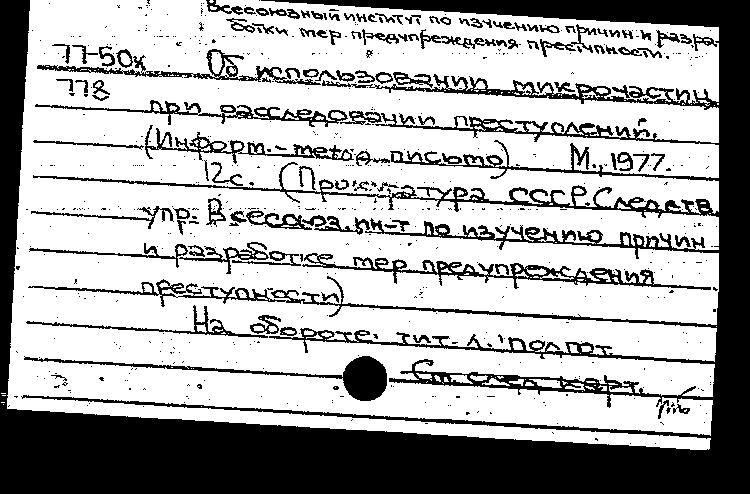 Всесоюзный институт по изучению причин и разра-
ботки мер предупреждения преступности.
77-50к Об использовании микрочастиц
778 при расследовании преступлений.
(Информ.-метод. письмо). М., 1977.
12с. (Прокуратура СССР. Следств.
упр. Всесоюз. ин-т по изучению причин
и разработке мер предупреждения
преступности)
На обороте тит. л.: подгот.
См. след. карт.